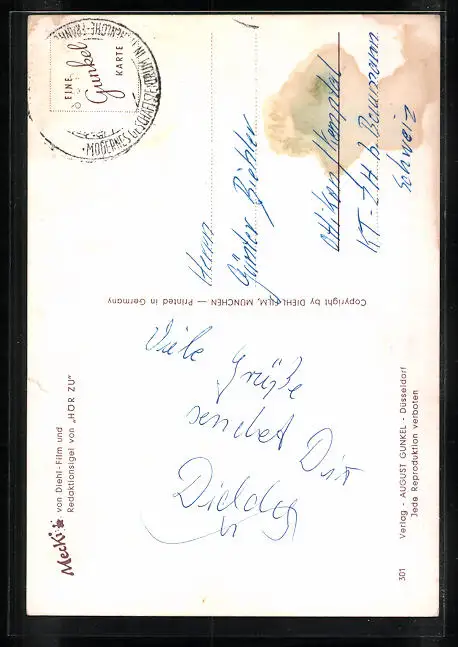 Mecki
von Diehl-Film und
Redaktionsigel von „HÖR ZU"
Viele
Grüße
sendet Dir
301
Verlag - AUGUST GUNKEL - Düsseldorf
Jede Reproduktion verboten
Copyright by DIEHL-FILM, MÜNCHEN — Printed in Germany
EINE
Gunkel
KARTE
Herrn
Günter Bichler
KT-ZH b. Baumann
Schweiz